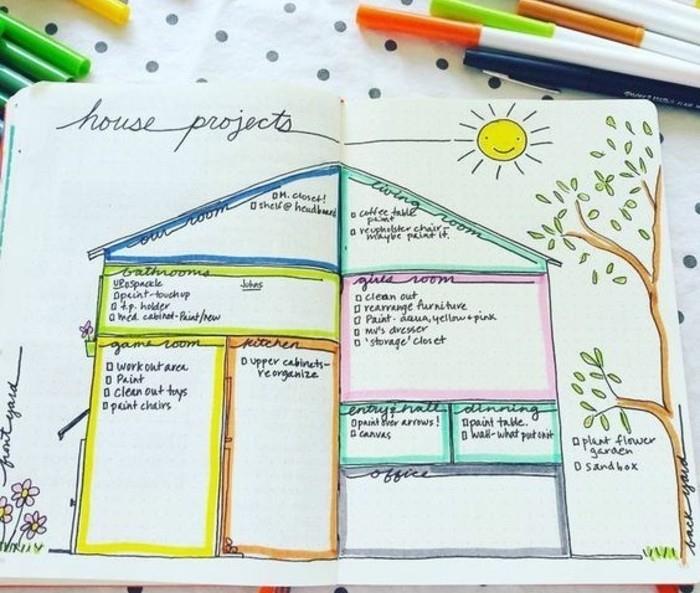 house projects
our room
M. closet!
shelf @ headboard
living room
coffee table
paint
reupholster chair-
maybe paint it.
bathrooms
UP
Johns
spackle
paint-touchup
t.p. holder
med. cabinet-Paint/new
girls room
clean out
rearrange furniture
Paint- aqua, yellow + pink
mv's dresser
'storage' closet
game room
work out area
Paint
clean out toys
paint chairs
kitchen
upper cabinets-
reorganize
entry & hall
paint over arrows!
canvas
dinning
paint table.
wall-what put on it
office
front yard
plant flower
garden
sandbox
back yard